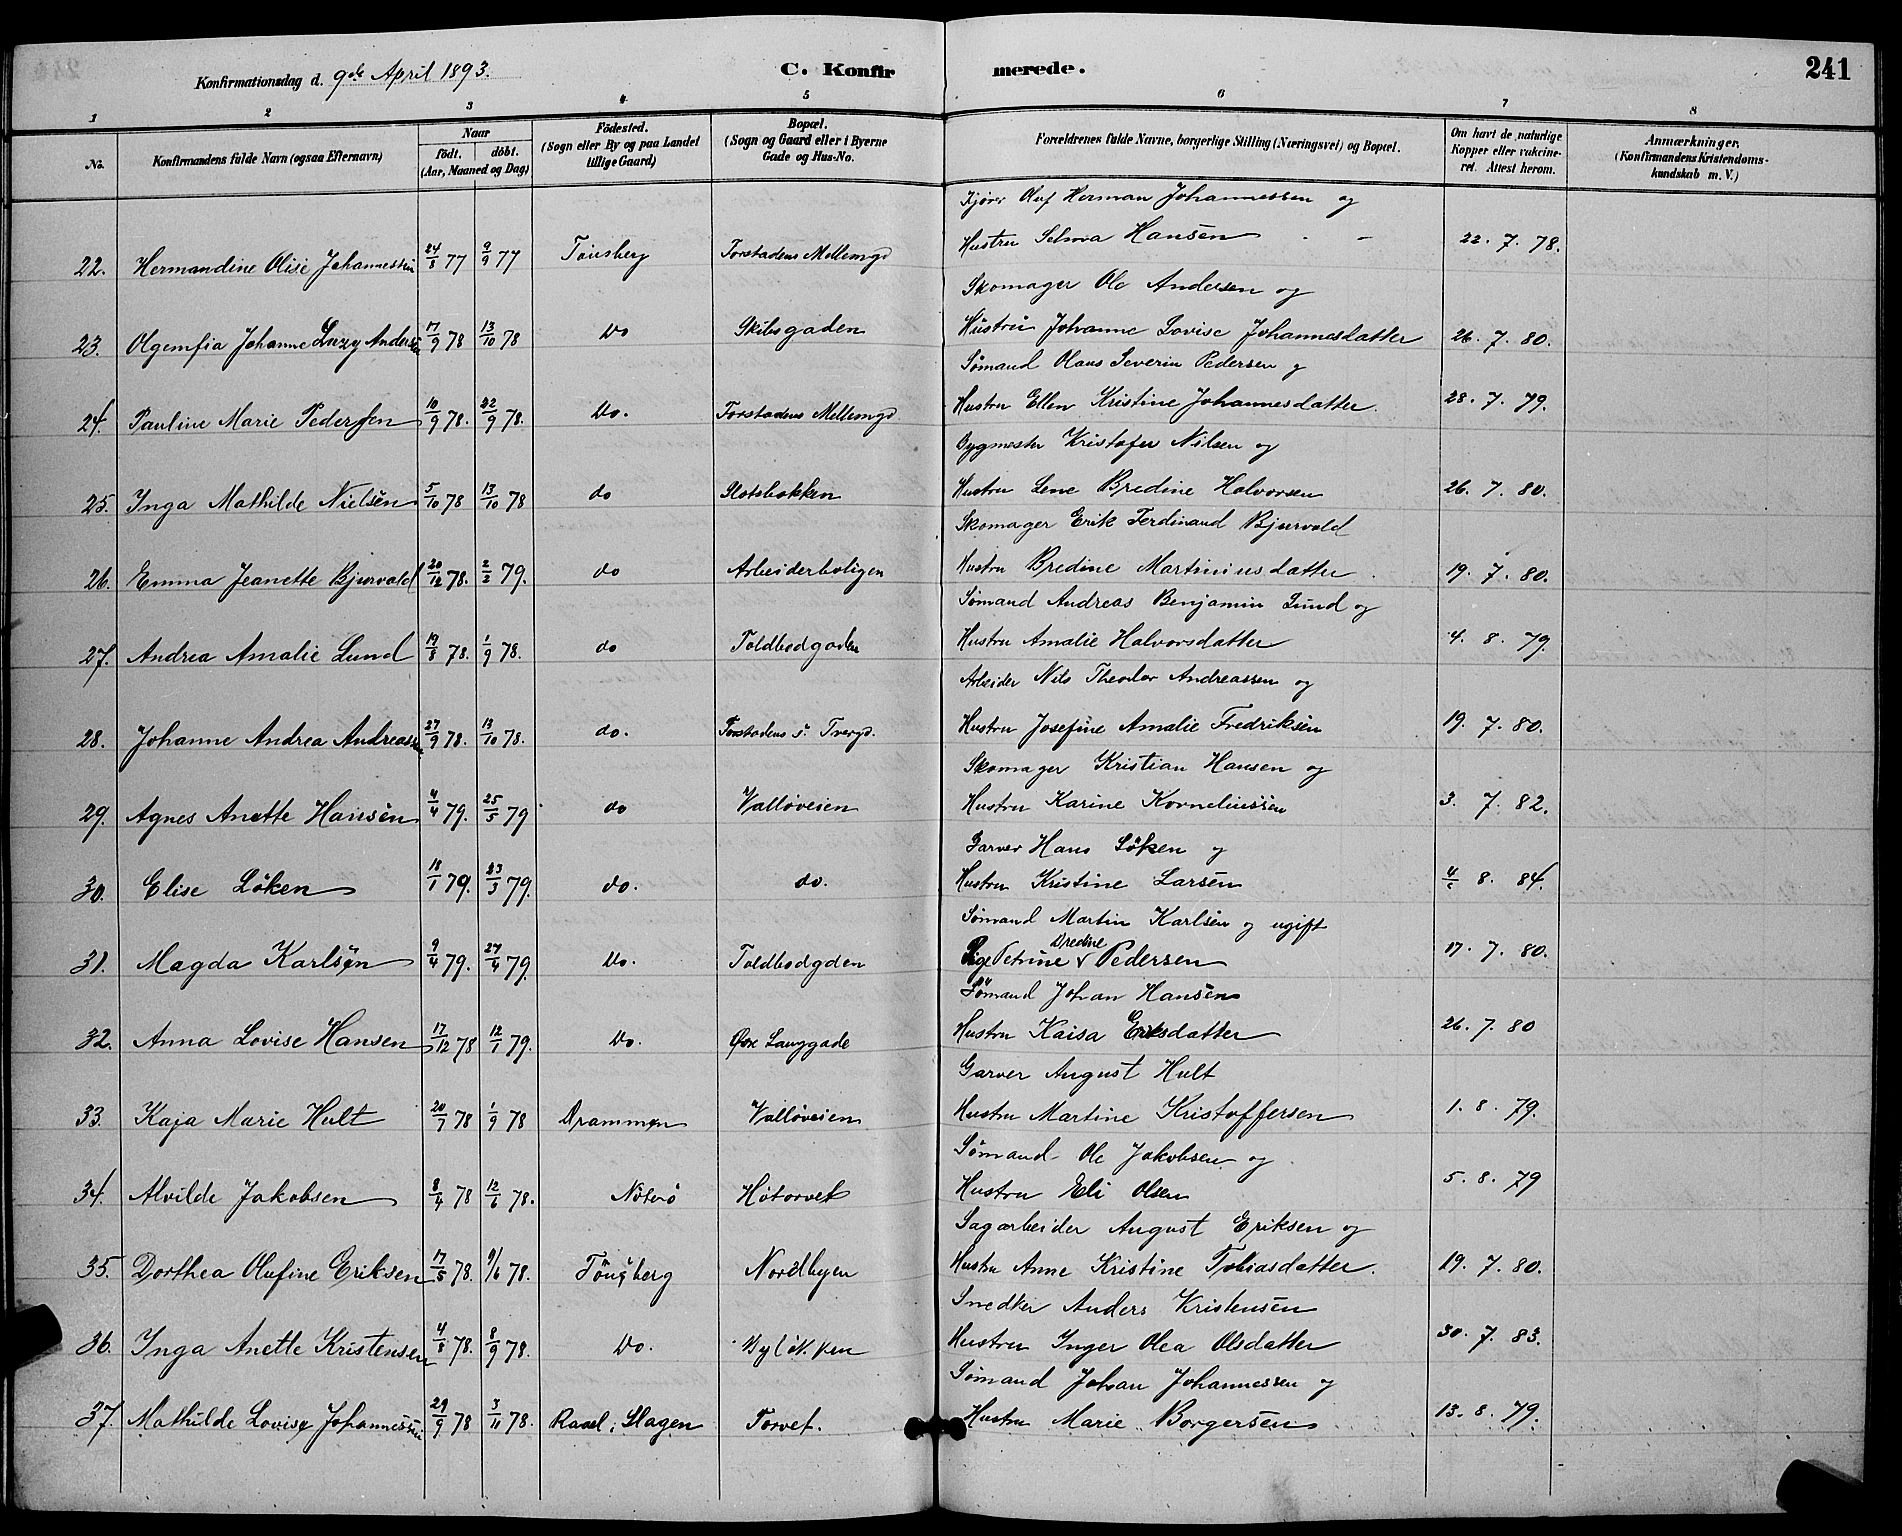 Konfirmationsdag d. 9de April 1893. C. Konfirmerede. 241
1 2 3 4 5 6 7 8
No. Konfirmandens fulde Navn (ogsaa Efternavn) Naar födt. döbt. (Aar, Maaned og Dag) Födested. (Sogn eller By og paa Landet tillige Gaard) Bopæl. (Sogn og Gaard eller i Byerne Gade og Hus-No. Forældrenes fulde Navne, borgerlige Stilling (Næringsvei) og Bopæl. Om havt de naturlige Kopper eller vakcineret. Attest herom. Anmærkninger. (Konfirmandens Kristendomskundskab m. V.)
Olaf Herman Johannessen og
22. Hermandine Olise Johannessen 24/8 77 9/9 77 Tönsberg Forstadens Mellemgd Hustru Selma Hansen - - 22. 7. 78.
Skomager Ole Andersen og
23. Johanne Andersen 17/9 78 13/10 78 Do Skibsgaden Hustru Johanne Lovise Johannesdatter 26. 7. 80.
Sömand Olaus Severin Pedersen og
24. Pauline Marie Pedersen 10/9 78. 22/9 78. Do. Forstadens Mellemgd Hustru Ellen Kristine Johannesdatter. 28. 7. 79.
Bygmester Kristofer Nilsen og
25. Inga Mathilde Nielsen 5/10 78 13/10 78 do Slotsbakken Hustru Lene Bredine Halvorsen 26. 7. 80.
Skomager Erik Ferdinand Bjurvold
26. Emma Jeanette Bjurvald 20/12 78. 2/2 79. do Arbeiderboligen Hustru Bredine Martiniusdatter 19. 7. 80.
Sömand Andreas Benjamin Lund og
27. Andrea Amalie Lund 19/8 78. 1/9 78. do Toldbodgaden Hustru Amalie Halvorsdatter 4. 8. 79.
Arbeider Nils Theodor Andreassen og
28. Johanne Andrea Andreassen 27/9 78. 13/10 78. do. Forstadens Hustru Josefine Amalie Fredriksen 19. 7. 80.
Skomager Kristian Hansen og
29. Agnes Anette Hansen 4/4 79. 25/5 79 do Valløveien Hustru Karine Korneliussen 3. 7. 82.
Garver Hans Löken og
30. Elise Löken 18/1 79. 23/3 79. do. do. Hustru Kristine Larsen 8. 84.
Sömand Martin Karlsen og ugift
31. Magda Karlsen 9/4 79. 27/4 79. Do. Toldbodgden Pige Petrine Bredine Pedersen 17. 7. 80.
Sömand Johan Hansen
32. Anna Lovise Hansen 17/12 78 12/1 79. Do. Øvre Langgade Hustru Kaisa Eriksdatter 26. 7. 80
Garver August Hult
33. Kaja Marie Hult 20/7 78 1/9 78 Drammen Valløveien Hustru Martine Kristoffersen 1. 8. 79.
Sömand Ole Jakobsen og
34. Alvilde Jakobsen 8/4 78 12/6 78. Nöterö Høtorvet Hustru Eli Olsen 5. 8. 79
Sagarbeider August Eriksen og
35. Dorthea Olufine Eriksen 17/5 78. 9/6 78. Tönsberg Nordbyen Hustru Anne Kristine Tobiasdatter. 19. 7. 80.
Snedker Anders Kristensen
36. Inga Anette Kristensen 4/8 78. 8/9 78. Do. Byløkken Hustru Inger Olea Olsdatter 30. 7. 83.
Sömand Johan Johannessen og
37. Mathilde Lovise Johannessen 29/9 78 3/11 78. Raael i Slagen Torvet. Hustru Marie Borgersen 13. 8. 79.